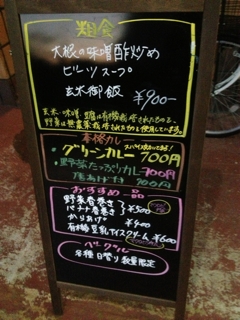 粗食
大根の味噌酢炒め
ビーツスープ
玄米御飯
¥900-
玄米、味噌、醤は有機栽培されたもの、
野菜は無農薬栽培されたものを使用しています。
本格カレー
スパイスきいてます!
グリーンカレー 700円
野菜たっぷりカレー 700円
厚あげ 900円
おすすめ一品
野菜春巻き
バナナ春巻き ¥500
からあげ ¥400
有機豆乳アイスクリーム ¥600
ベーグル
各種日替り数量限定